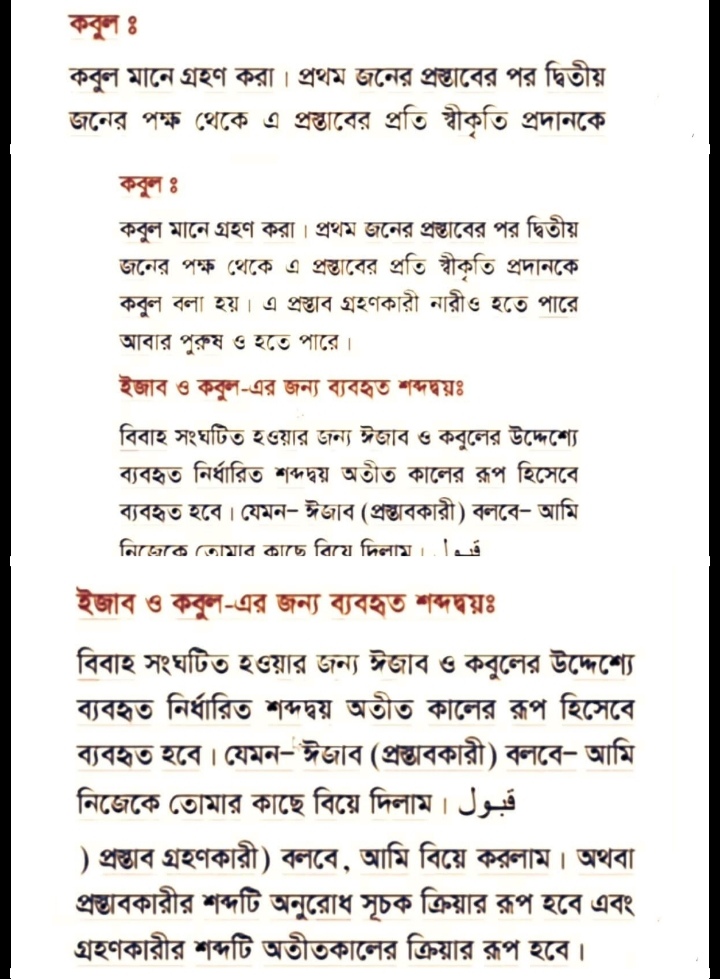 কবুল ঃ
কবুল মানে গ্রহণ করা। প্রথম জনের প্রস্তাবের পর দ্বিতীয়
জনের পক্ষ থেকে এ প্রস্তাবের প্রতি স্বীকৃতি প্রদানকে
কবুল ঃ
কবুল মানে গ্রহণ করা। প্রথম জনের প্রস্তাবের পর দ্বিতীয়
জনের পক্ষ থেকে এ প্রস্তাবের প্রতি স্বীকৃতি প্রদানকে
কবুল বলা হয়। এ প্রস্তাব গ্রহণকারী নারীও হতে পারে
আবার পুরুষ ও হতে পারে।
ইজাব ও কবুল-এর জন্য ব্যবহৃত শব্দদ্বয়ঃ
বিবাহ সংঘটিত হওয়ার জন্য ঈজাব ও কবুলের উদ্দেশ্যে
ব্যবহৃত নির্ধারিত শব্দদ্বয় অতীত কালের রূপ হিসেবে
ব্যবহৃত হবে। যেমন– ঈজাব (প্রস্তাবকারী) বলবে– আমি
নিজেকে তোমার কাছে বিয়ে দিলাম।
ইজাব ও কবুল-এর জন্য ব্যবহৃত শব্দদ্বয়ঃ
বিবাহ সংঘটিত হওয়ার জন্য ঈজাব ও কবুলের উদ্দেশ্যে
ব্যবহৃত নির্ধারিত শব্দদ্বয় অতীত কালের রূপ হিসেবে
ব্যবহৃত হবে। যেমন– ঈজাব (প্রস্তাবকারী) বলবে– আমি
নিজেকে তোমার কাছে বিয়ে দিলাম। قبول
) প্রস্তাব গ্রহণকারী) বলবে, আমি বিয়ে করলাম। অথবা
প্রস্তাবকারীর শব্দটি অনুরোধ সূচক ক্রিয়ার রূপ হবে এবং
গ্রহণকারীর শব্দটি অতীতকালের ক্রিয়ার রূপ হবে।